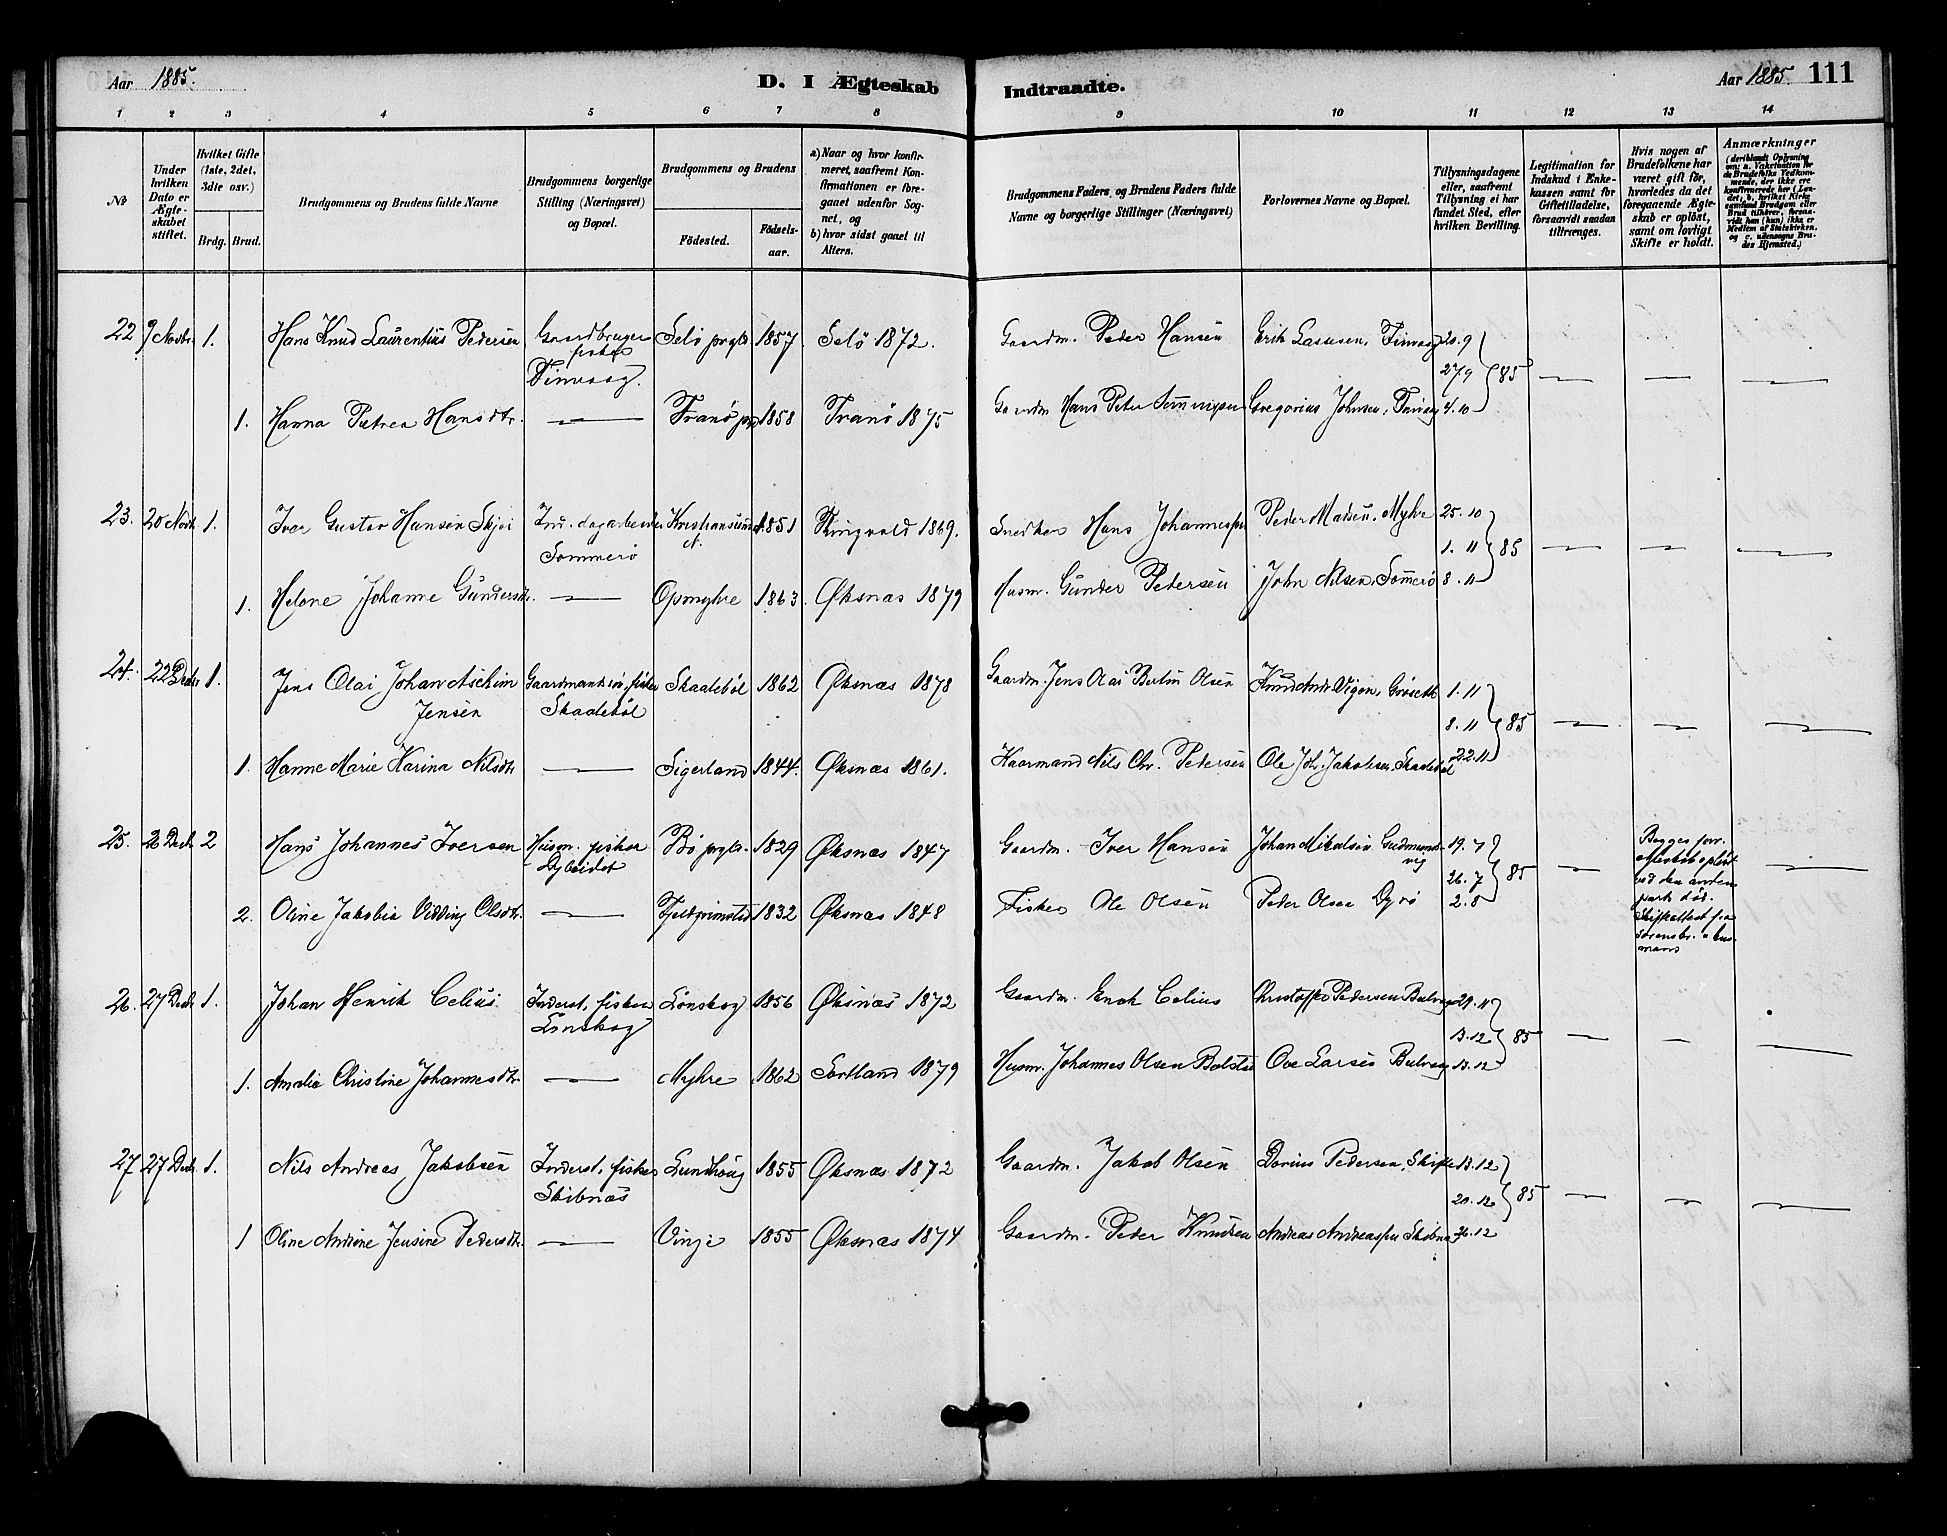 Aar 1885.
D. I Ægteskab
Indtraadte.
Aar 1885. 111
1 2 3 4 5 6 7 8 9 10 11 12 13 14
No
Under hvilken Dato er Ægteskabet stiftet.
Hvilket Gifte (1ste, 2det, 3die osv.)
Brdg. Brud.
Brudgommens og Brudens fulde Navne
Brudgommens borgerlige Stilling (Næringsvei) og Bopæl.
Brudgommens og Brudens
Fødested. Fødselsaar.
a) Naar og hvor konfirmeret, saafremt Konfirmationen er foregaaet udenfor Sognet, og
b) hvor sidst gaaet til Alters.
Brudgommens Faders og Brudens Faders fulde Navne og borgerlige Stillinger (Næringsvei)
Forlovernes Navne og Bopæl.
Tillysningsdagene eller, saafremt Tillysning ei har fundet Sted, efter hvilken Bevilling.
Legitimation for Indskud i Enkekassen samt for Giftetilladelse, forsaavidt saadan tiltrænges.
Hvis nogen af Brudefolkene har været gift før, hvorledes da det foregaaende Ægteskab er opløst, samt om lovligt Skifte er holdt.
Anmærkninger
22 9 Novbr. 1. Hans Knud Laurentius Pedersen Gaardbruger fisker Selö prgld 1857 Selö 1872. Gaardm. Peder Hansen Erik 20.9
27.9 85
1. Hanna Petrea Hansdtr. Tranö 1858 Tranö 1875 Gaardm Hans Peter Gregorius Johnsen, 4.10
23. 20 Novb. 1. Iver Gustav Hansen Ind. dagarbeider Kristiansund N. 1851 Tingvold 1869. Snedker Hans Johannesen Peder Madsen, Myhre 25.10
Sommerö 1.11 85
1. Helene Johanne Gundersdtr. Opmyhre 1863. Øksnæs 1879 Husm. Gunder Pedersen John Nilsen, Sommerö 8.11
24. 22 Decbr 1. Jens Olai Johan Aschim Jensen Gaardmandssön, fisker Skaaleböl Skaaleböl 1862 Øksnæs 1878 Gaardm. Jens Olai Bertin Olsen 1.11
8.11 85
1. Hanne Marie Karina Nilsdtr Sigerland 1844. Øksnæs 1861. Kaarmand Nils Chr. Pedersen Ole Joh. Jakobsen, Skaaleböl 22.11
25. 26 Decb. 2 Hans Johannes Iversen Husm. fisker Dybeidet Bö prgld. 1829 Øksnæs 1847 Gaardm. Iver Hansen Johan Mikalsen Gudmundvig 19.7
26.7 85
2. Oline Jakobia Olsdtr. 1832 Øksnæs 1848 Fisker Ole Olsen Peder Olsen Dyrö 2.8
Begges forr. Ægteskab opløst ved den anden parts död. Skifteattest fra
26. 27 Decb 1. Johan Henrik Celius. Inderst, fisker Lönskog Lönskog 1856 Øksnæs 1872 Gaardm. Enok Celius Christoffer Pedersen 29.11
13.12 85
1. Amalie Christine Johannesdtr Myhre 1862 Sortland 1879 Husm. Johannes Olsen Ove Larsen 13.12
27 27 Decb. 1. Nils Andreas Jakobsen Inderst, fisker Skibnæs 1855 Øksnæs 1872 Gaardm. Jakob Olsen Dorius Pedersen, 13.12
20.12 85
1 Oline Andrine Jensine Pedersdtr. Vinje 1855 Øksnæs 1874 Gaardm. Peder Knudsen Andreas Andreassen Skibnæs 26.12